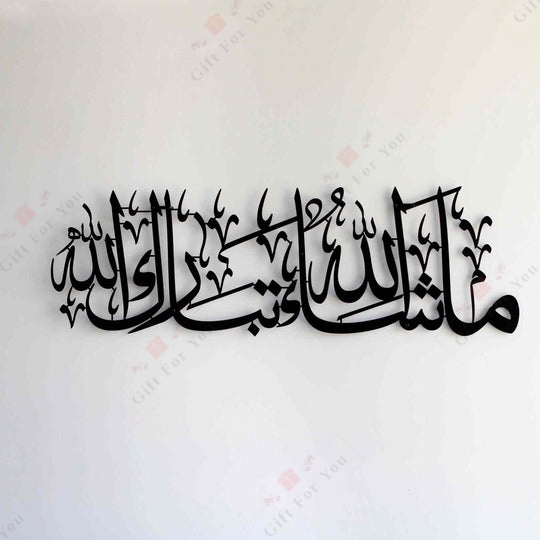 ما شاء الله تبارك الله
Gift For You
Gift For You
Gift For You
Gift For You
Gift For You
Gift For You